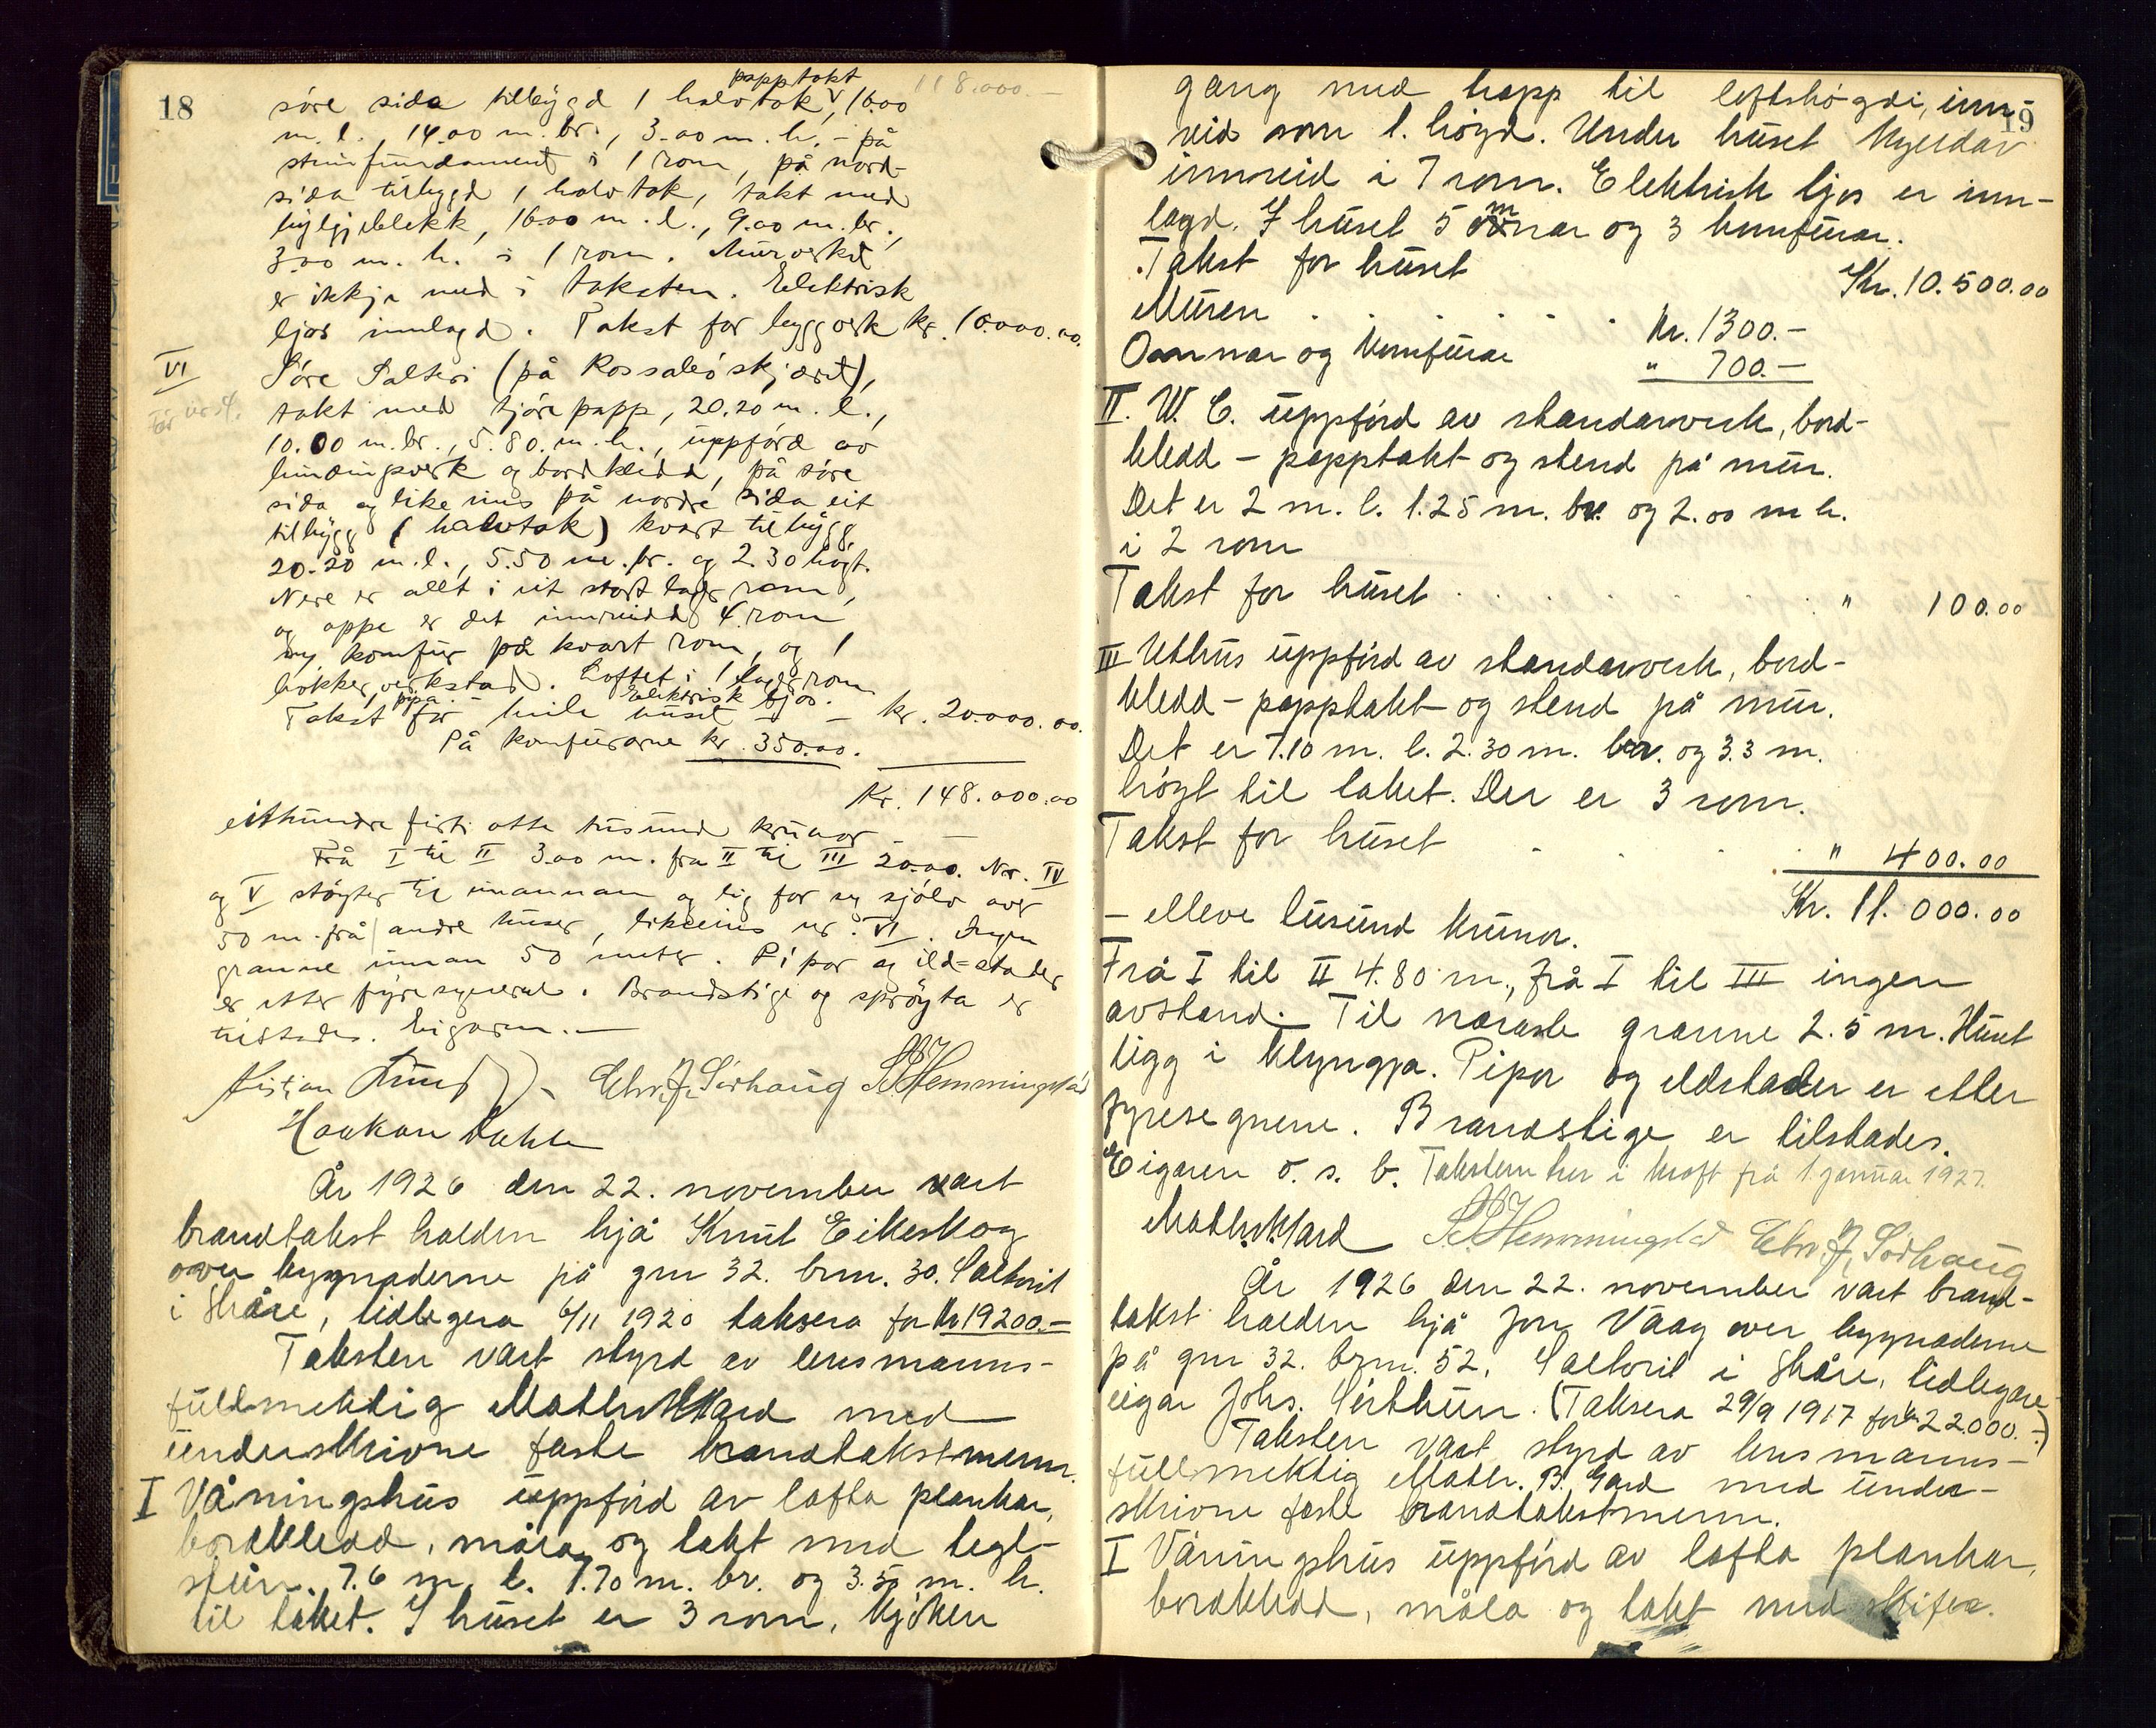 18
118.000.–
papptakt
søre sida tilbygd 1 halvtak, 16.00
m. l., 14.00 m. br., 3.00 m. h. – på
steinfundament i 1 rom, på nord-
sida tilbygd 1 halvtak, takt med
bylgjeblekk, 16.00 m. l., 9.00 m. br.,
3.00 m. h. i 1 rom. Murverket
er ikkje med i taksten. Elektrisk
ljos innlagd. Takst for byggverk kr. 10.000.00.
VI Søre Salteri (på Rossabøskjæret),
takt med tjørepapp, 20.20 m. l.,
10.00 m. br., 5.80. m. h., uppførd av
bindingsverk og bordkledd, på søre
sida og likeeins på nordre sida eit
tilbygg (halvtak) kvart tilbygg
20.20 m. l., 5.50 m. br. og 2.30 høgt.
Nere er allt i eit stort lagr rom,
og oppe er det innreidd 4 rom
og komfur på kvart rom, og 1
bøkkerverkstad. Loftet i 1 lagerrom
pipa. – Elektrisk ljos.
Takst for heile huset – – kr. 20.000.00.
På komfurarne kr. 350.00.
Kr. 148.000.00
eithundre førti otte tusund krunor – –
Frå I til II 3.00 m. fra II til III 20.00. Nr. IV
og V støyter til einannan og lig for seg sjølv over
50 m. frå andre huser, likeeins nr. VI. Ingen
granne innan 50 meter. Pipor og ild-stader
er etter fyresegnerne. Brandstige og sprøyta er
tilstades. Eigaren. –
Kristian Chr. J. Sørhaug S. Hemmingstad
Haakon Dahle
År 1926 den 22. november vart
brandtakst halden hjå Knut Eikeskog
over bygnaderne på gnr 32. brn. 30. Saltvik
i Skåre, tidlegera 6/11 1920 taksera for kr 19200.–
Taksten vart styrd av lensmanns-
fullmektig Mathv. Gard med
underskrivne faste brandtakstmenn.
I Våningshus uppførd av lafta plankar,
bordkledd, måla og takt med tegl-
stein. 7.6 m. l. 7.70 m. br. og 3.50 m. h.
til taket. I huset er 3 rom, kjøken
19
gang med trapp til loftshøgdi, inn-
reid som 1. høgd. Under huset kjeldar
innreid i 7 rom. Elektrisk ljos er inn-
lagd. I huset 5 omnar og 3 komfurar.
Takst for huset Kr. 10.500.00
Muren . . . . . Kr. 1300.–
Omnar og komfurar " 700.–
II. W. C. uppførd av standarverk, bord-
kledd – papptakt og stend på mur.
Det er 2 m. l. 1.25 m. br. og 2.00 m h.
i 2 rom
Takst for huset . . . . . " 100.00
III Uthus uppførd av standarverk, bord-
kledd – papptakt og stend på mur.
Det er 7.10 m. l. 2.30 m. br. og 3.3 m.
høgt til taket. Der er 3 rom.
Takst for huset . . . . " 400.00
Kr. 11.000.00
– elleve tusund krunor.
Frå I til II 4.80 m., frå I til III ingen
avstand. Til næraste granne 2.5 m. Huset
ligg i klyngja. Pipor og eldstader er etter
fyresegnene. Brandstige er tilstades.
Eigaren o. s. b. Taksten her i kraft frå 1. januar 1927.
Mathv. Gard S. Hemmingstad Chr. J. Sørhaug
År 1926 den 22. november vart brand-
takst halden hjå Jon Vaag over bygnaderne
på gnr 32. brn. 52, Saltvik i Skåre, tidlegare
eigar Johs. Seithun. (Taksera 29/9 1917 for kr 22000.–)
Taksten vart styrd av lensmanns-
fullmektig Mathv. B. Gard med under-
skrivne faste brandtakstmenn.
I Våningshus uppførd av lafta plankar,
bordkledd, måla og takt med skifer.